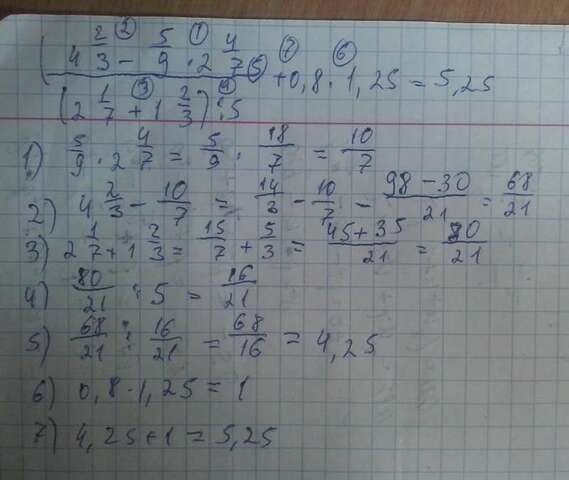 (4 2/3 ② − 5/9 ① · 2 4/7 ⑤ ⑦ ⑥
+ 0,8 · 1,25 = 5,25
(2 1/7 ③ + 1 2/3) ④ : 5
1) 5/9 · 2 4/7 = 5/9 · 18/7 = 10/7
2) 4 2/3 − 10/7 = 14/3 − 10/7 − (98 − 30)/21 = 68/21
3) 2 1/7 + 1 2/3 = 15/7 + 5/3 = (45 + 35)/21 = 80/21
4) 80/21 : 5 = 16/21
5) 68/21 : 16/21 = 68/16 = 4,25
6) 0,8 · 1,25 = 1
7) 4,25 + 1 = 5,25